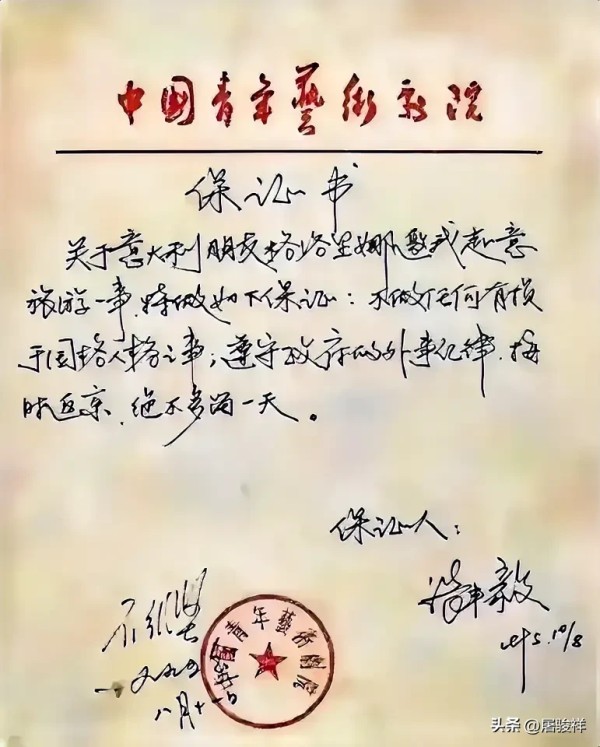 中国青年藝術剧院
保证书
关于意大利朋友格洛里娜邀我赴意
旅游一事,特做如下保证:不做任何有损
于国格人格之事;遵守政府的外事纪律,按
时返京,绝不多留一天。
保证人:
95.10/8
石维坚
一九九五
八月十一日
中国青年藝術劇院
头条 @屠骏祥